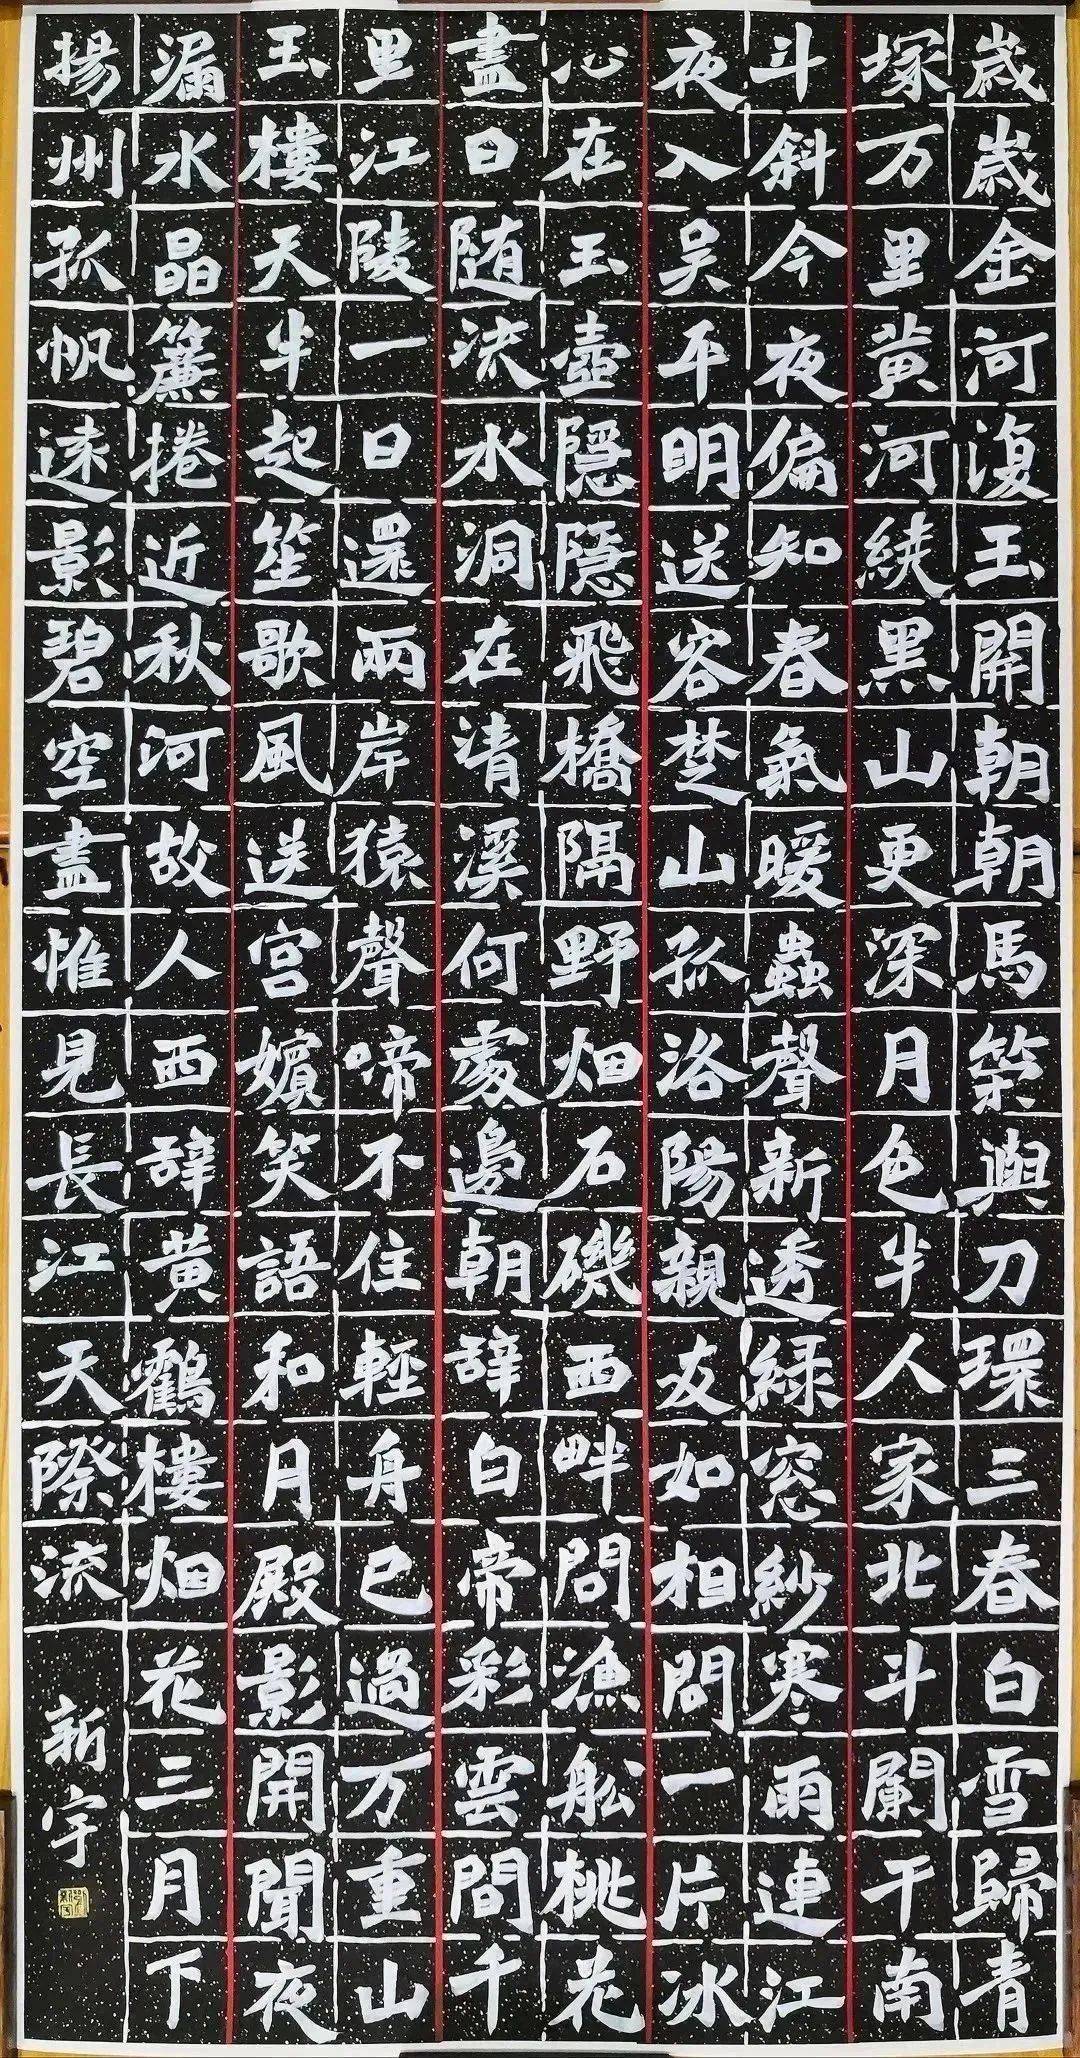 歲歲金河復王開朝朝馬策與刀環三春白雪歸青
塚万里黄河繞黑山更深月色半人家北斗闌干南
斗斜今夜偏知春氣暖蟲聲新透緑窓紗寒雨連江
夜入吴平明送客楚山孤洛陽親友如相問一片冰
心在玉壺隱隱飛橋隔野烟石磯西畔問漁船桃花
盡日随流水洞在清溪何處邊朝辞白帝彩雲間千
里江陵一日還兩岸猿聲啼不住輕舟已過万重山
玉樓天半起笙歌風送宫嬪笑語和月殿影開聞夜
漏水晶簾捲近秋河故人西辞黄鶴樓烟花三月下
揚州孤帆遠影碧空盡惟見長江天際流
新宇